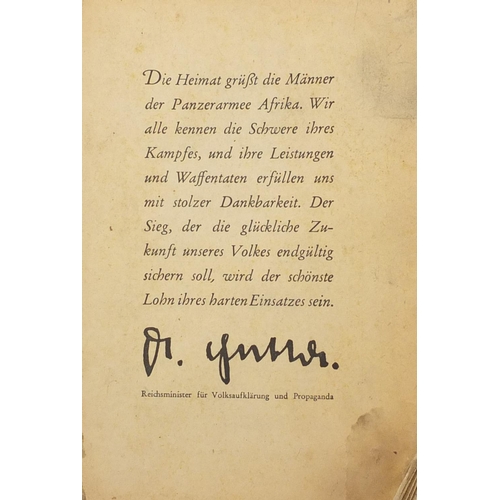 Die Heimat grüßt die Männer
der Panzerarmee Afrika. Wir
alle kennen die Schwere ihres
Kampfes, und ihre Leistungen
und Waffentaten erfüllen uns
mit stolzer Dankbarkeit. Der
Sieg, der die glückliche Zu-
kunft unseres Volkes endgültig
sichern soll, wird der schönste
Lohn ihres harten Einsatzes sein.
Dr.
Reichsminister für Volksaufklärung und Propaganda